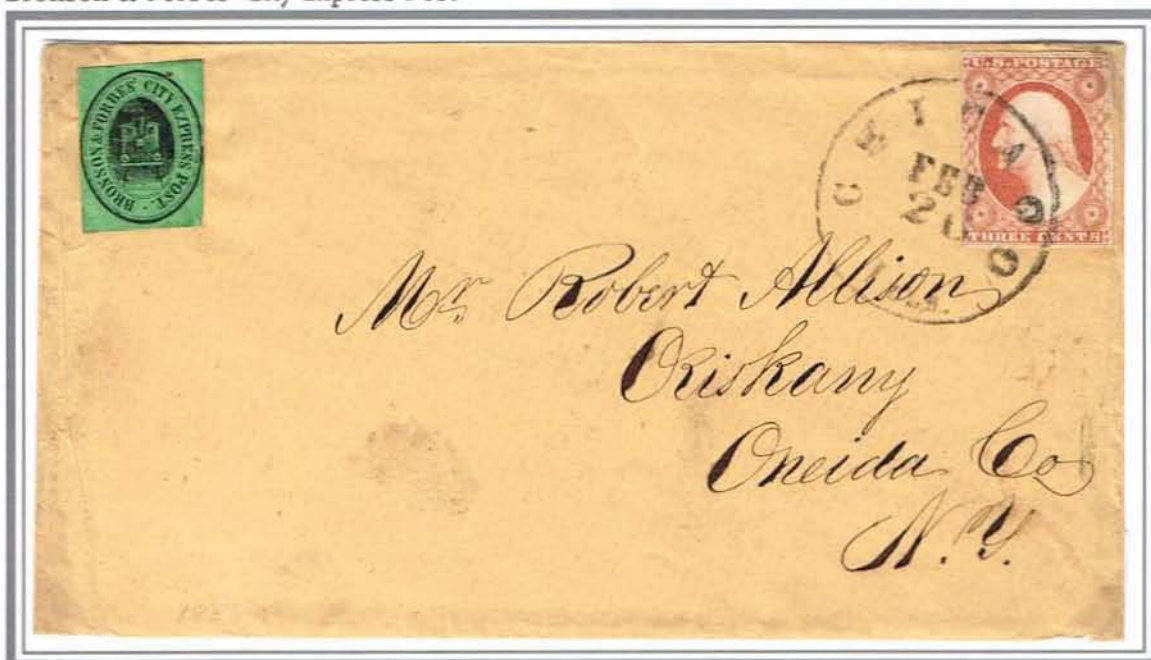 Bronson & Forbes' City Express Post
BRONSON & FORBES' CITY EXPRESS POST.
U.S. POSTAGE
THREE CENTS
CHICAGO
FEB
Mr. Robert Allison
Oriskany
Oneida Co
N.Y.